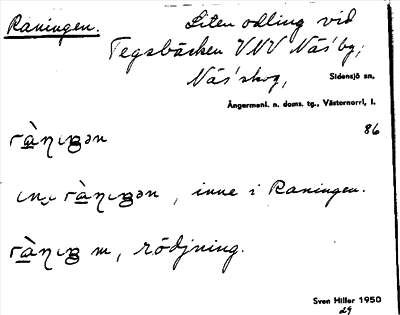 Raningen. Liten odling vid
Tegsbäcken VNV Näs'by,
Näs'skog, Sidensjö sn,
Ångermanl. n. doms. tg., Västernorrl. l.
86
inne i Raningen.
m, rödjning.
Sven Hiller 1950
29